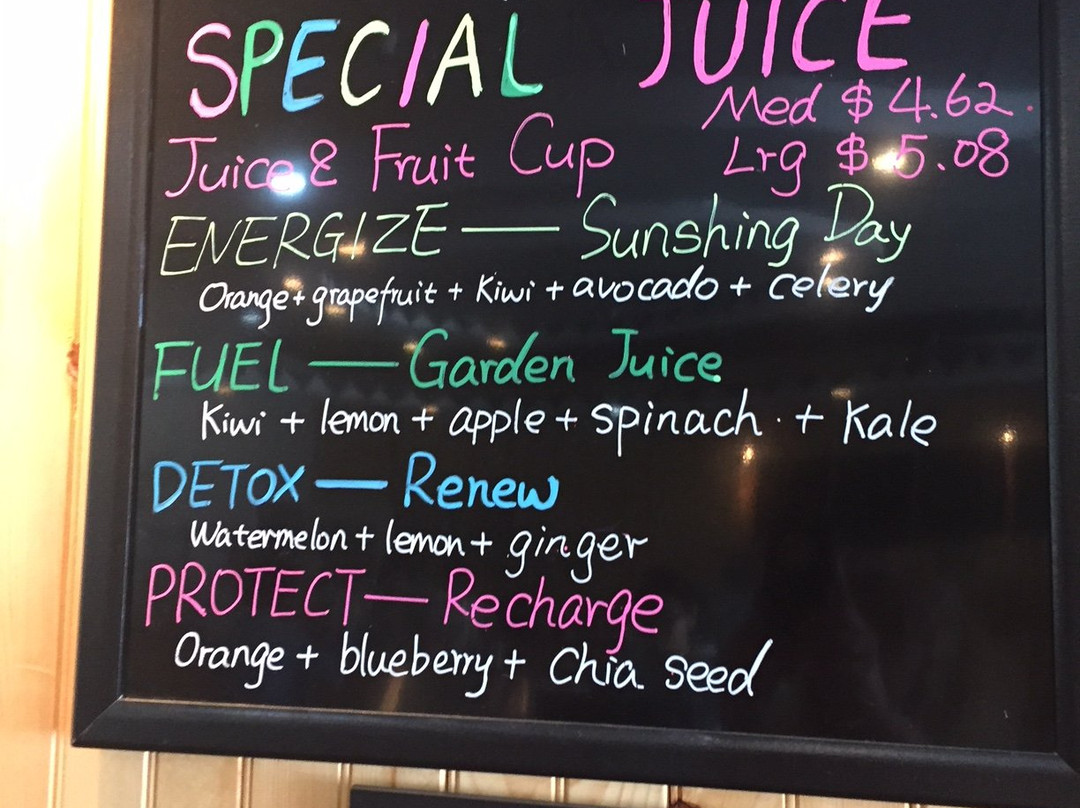 SPECIAL JUICE
Med $4.62.
Juice & Fruit Cup
Lrg $5.08
ENERGIZE — Sunshing Day
Orange + grapefruit + Kiwi + avocado + celery
FUEL — Garden Juice
Kiwi + lemon + apple + spinach + Kale
DETOX — Renew
Watermelon + lemon + ginger
PROTECT — Recharge
Orange + blueberry + Chia seed